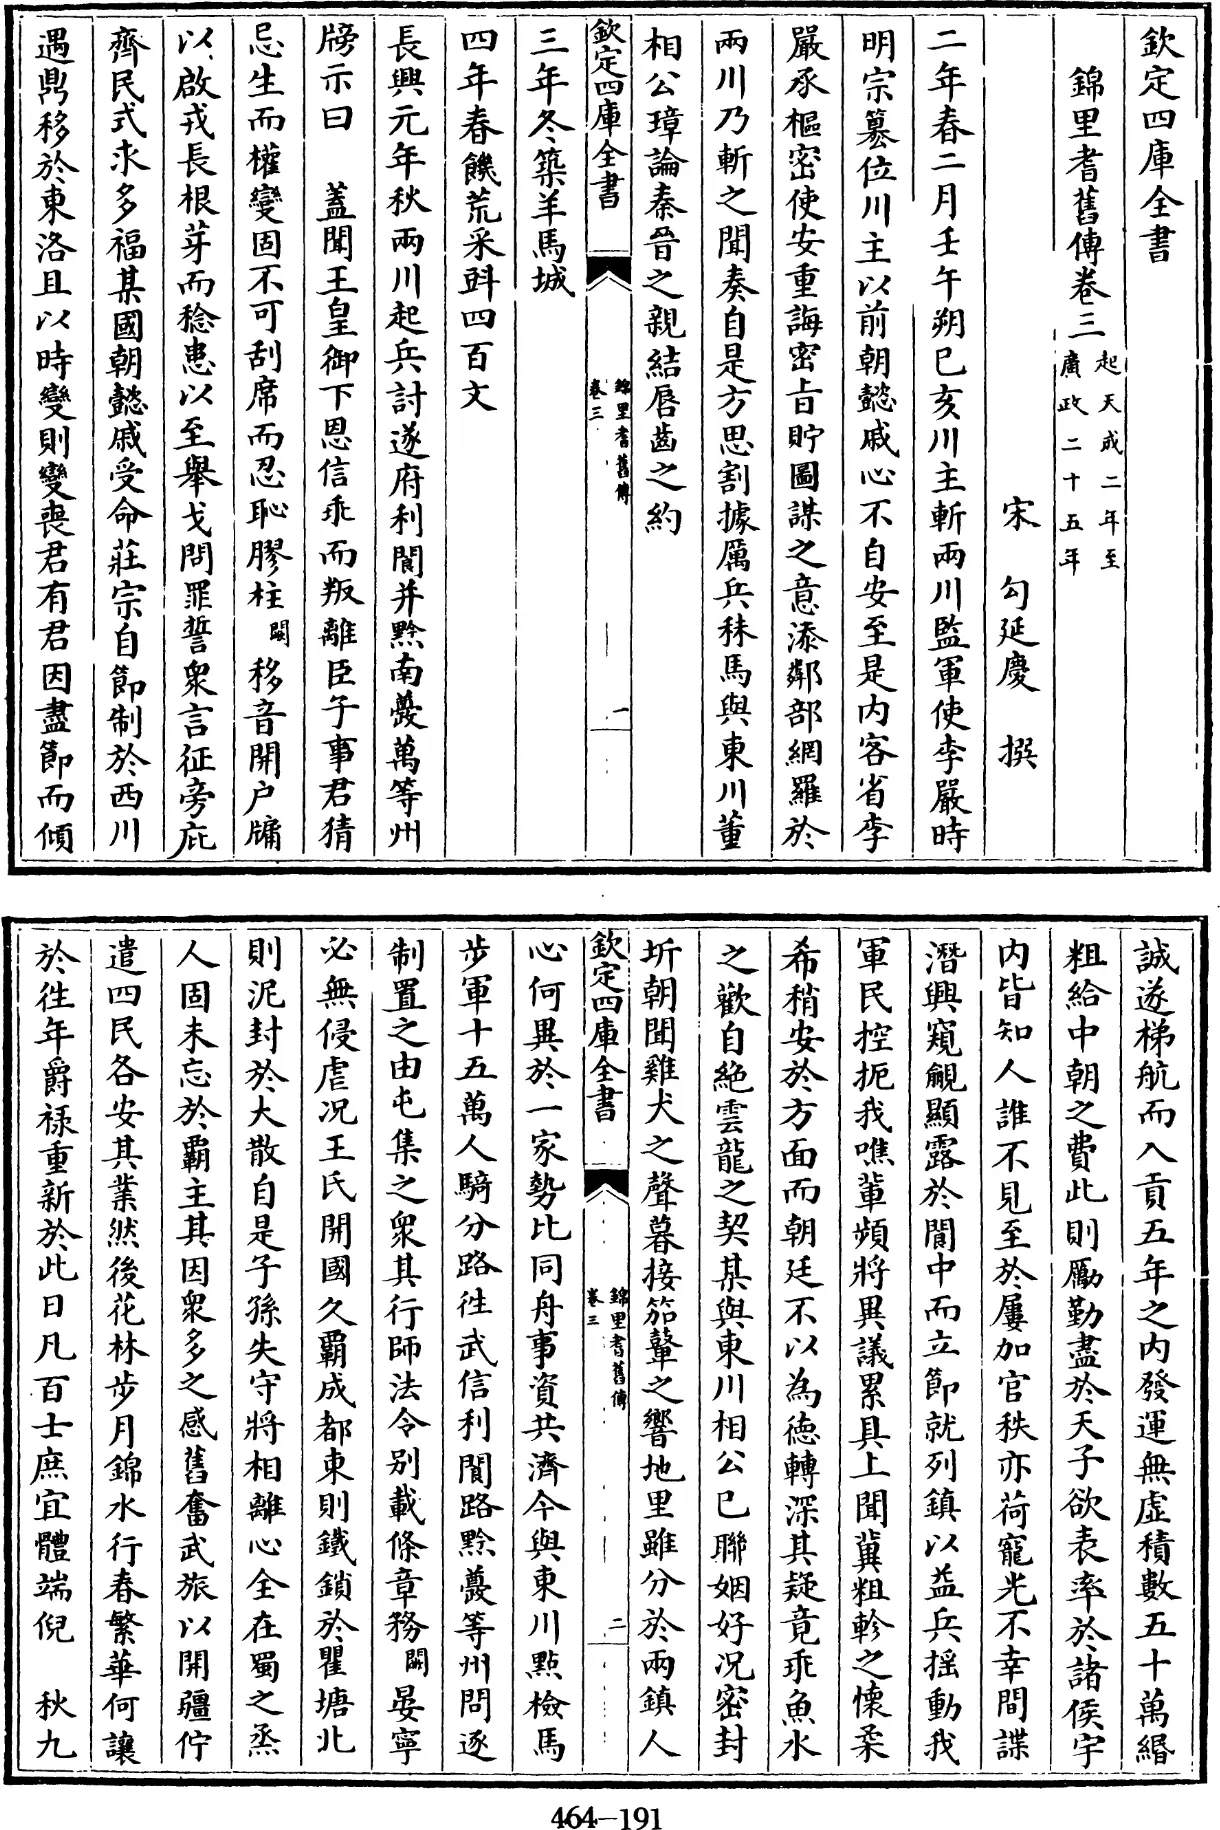 欽定四庫全書
錦里耆舊傳卷三起天成二年至廣政二十五年
宋 勾延慶 撰
二年春二月壬午朔己亥川主斬兩川監軍使李嚴時
明宗篡位川主以前朝懿戚心不自安至是内客省李
嚴承樞密使安重誨密旨貯圖謀之意添鄰部網羅於
兩川乃斬之聞奏自是方思割據厲兵秣馬與東川董
相公璋論秦晉之親結唇齒之約
欽定四庫全書
錦里耆舊傳
卷三
一
三年冬築羊馬城
四年春饑荒采㪷四百文
長興元年秋兩川起兵討遂府利閬并黔南夔萬等州
牓示曰 蓋聞王皇御下恩信乖而叛離臣子事君猜
忌生而權變固不可刮席而忍恥膠柱闕移音開户牖
以啟戎長根芽而稔患以至舉戈問罪誓衆言征旁庇
齊民式求多福某國朝懿戚受命莊宗自節制於西川
遇鼎移於東洛且以時變則變喪君有君因盡節而傾
誠遂梯航而入貢五年之内發運無虛積數五十萬緡
粗給中朝之費此則勵勤盡於天子欲表率於諸侯宇
内皆知人誰不見至於屢加官秩亦荷寵光不幸間諜
潛興窺覦顯露於閬中而立節就列鎮以益兵揺動我
軍民控扼我噍輩頻將異議累具上聞冀粗軫之懷柔
希稍安於方面而朝廷不以為徳轉深其疑竟乖魚水
之歡自絶雲龍之契某與東川相公已聯姻好况密封
圻朝聞雞犬之聲暮接笳鼙之響地里雖分於兩鎮人
欽定四庫全書
錦里耆舊傳
卷三
二
心何異於一家勢比同舟事資共濟今與東川點檢馬
步軍十五萬人騎分路徃武信利閬路黔夔等州問逐
制置之由屯集之衆其行師法令别載條章務闕晏寧
必無侵虐况王氏開國久霸成都東則鐵鎖於瞿塘北
則泥封於大散自是子孫失守將相離心全在蜀之烝
人固未忘於霸主其因衆多之感舊奮武旅以開疆佇
遣四民各安其業然後花林步月錦水行春繁華何讓
於徃年爵禄重新於此日凡百士庶宜體端倪 秋九
464-191